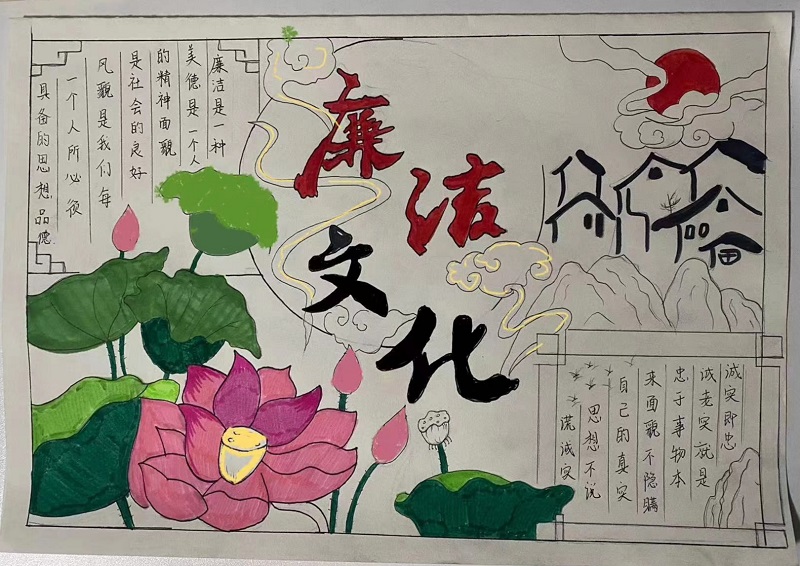 廉洁
文化
廉洁是一种
美德是一个人
的精神面貌
是社会的良好
风貌是我们每
一个人所必须
具备的思想品德
诚实即忠
诚老实就是
忠于事物本
来面貌不隐瞒
自己的真实
思想不说
谎诚实